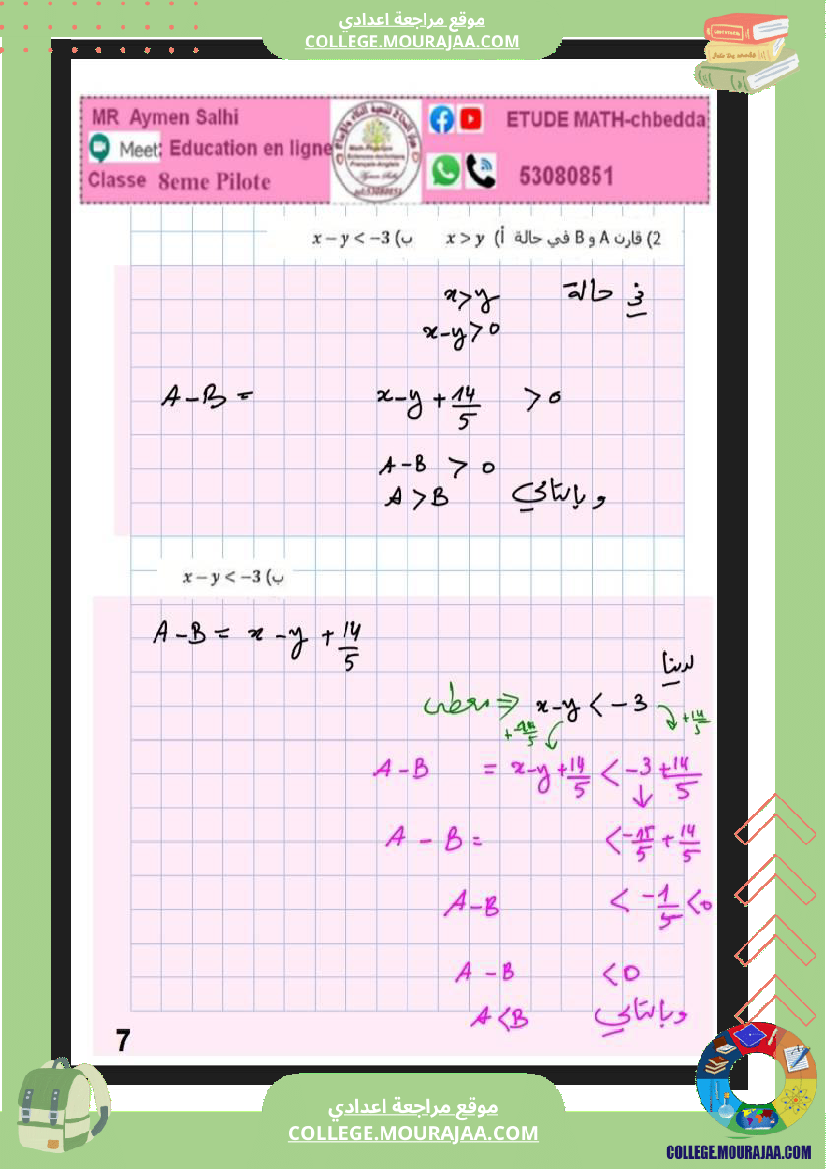 موقع مراجعة اعدادي
COLLEGE.MOURAJAA.COM
MR Aymen Salhi
Meet: Education en ligne
Classe 8eme Pilote
ETUDE MATH-chbedda
53080851
2) قارن A و B في حالة أ) x > y ب) x − y < −3
في حالة x>y
x-y>0
A-B= x-y+14/5 >0
A-B > 0
وبالتالي A>B
ب) x − y < −3
A-B= x-y+14/5
لدينا
x-y<-3 ⇒ معطى
+14/5 +14/5
A-B = x-y+14/5 <-3+14/5
A-B= <-15/5+14/5
A-B < -1/5 <0
A-B <0
وبالتالي A<B
7
موقع مراجعة اعدادي
COLLEGE.MOURAJAA.COM
COLLEGE.MOURAJAA.COM